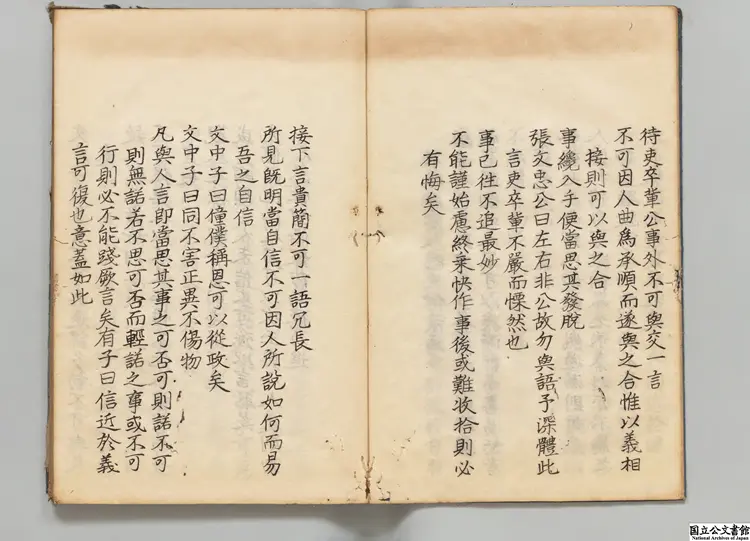 待吏卒軰公事外不可與交一言
不可因人曲爲承順而遂與之合惟以義相
接則可以與之合
事纔入手便當思其發脫
張文忠公曰左右非公故勿與語予深體此
言吏卒軰不嚴而慄然也
事已徃不追最妙
不能謹始慮終乗快作事後或難收拾則必
有悔矣
接下言貴簡不可一語冗長
所見旣明當自信不可因人所說如何而易
吾之自信
文中子曰僮僕稱恩可以從政矣
文中子曰同不害正異不傷物
凡與人言卽當思其事之可否可則諾不可
則無諾若不思可否而輕諾之事或不可
行則必不能踐厥言矣有子曰信近於義
言可復也意蓋如此
国立公文書館
National Archives of Japan